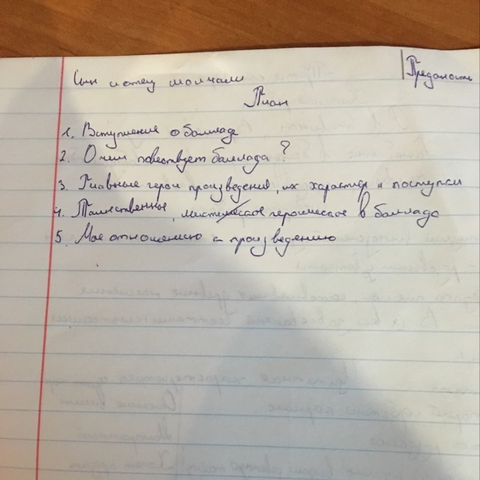 Сын и отец молчали
Преданость
План
1. Вступление о балладе
2. О чем повествует баллада?
3. Главные герои произведения, их характеры и поступки
4. Таинственные, мистическое героическое в балладе
5. Мое отношению к произведению